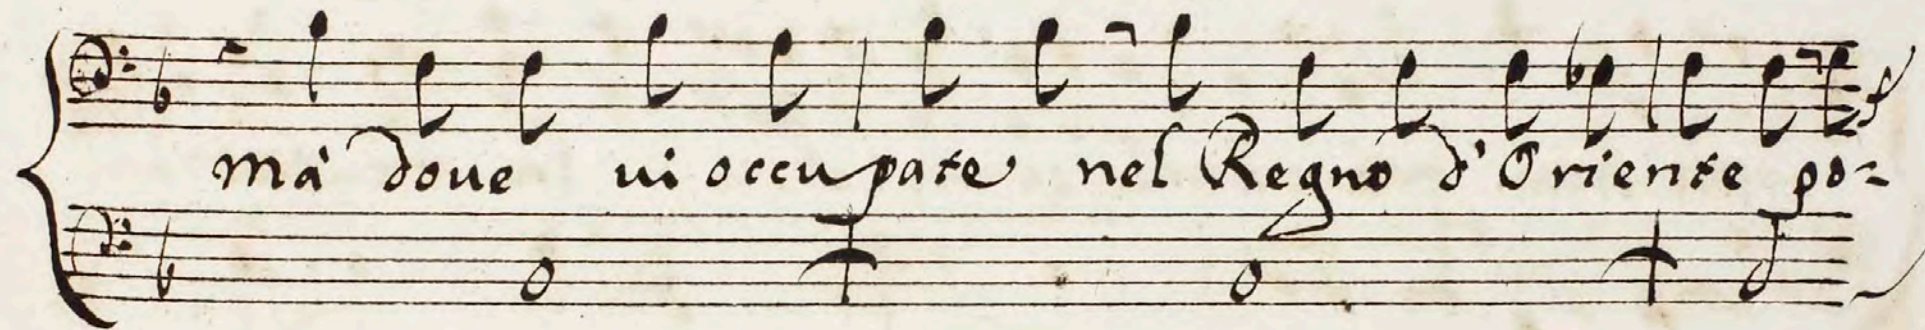 mà doue ui occupate nel Regno d'Oriente po=